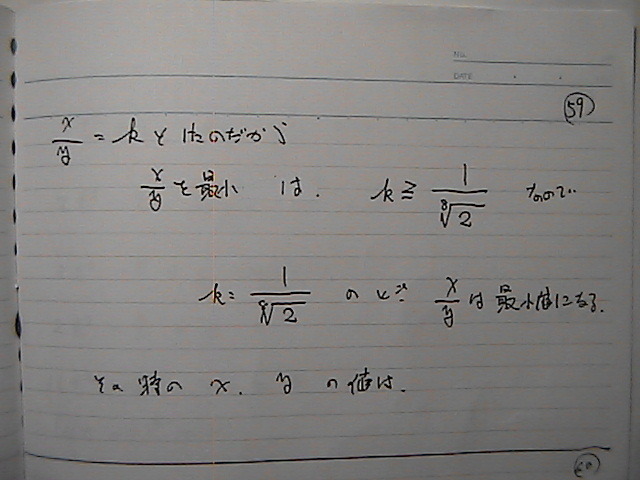 NO.
DATE
59
x/y = k としたのだから
x/y を最小 は、 k ≧ 1/⁸√2 なので…
k = 1/⁸√2 のとき x/y は最小値になる。
その時の x、y の値は、
60